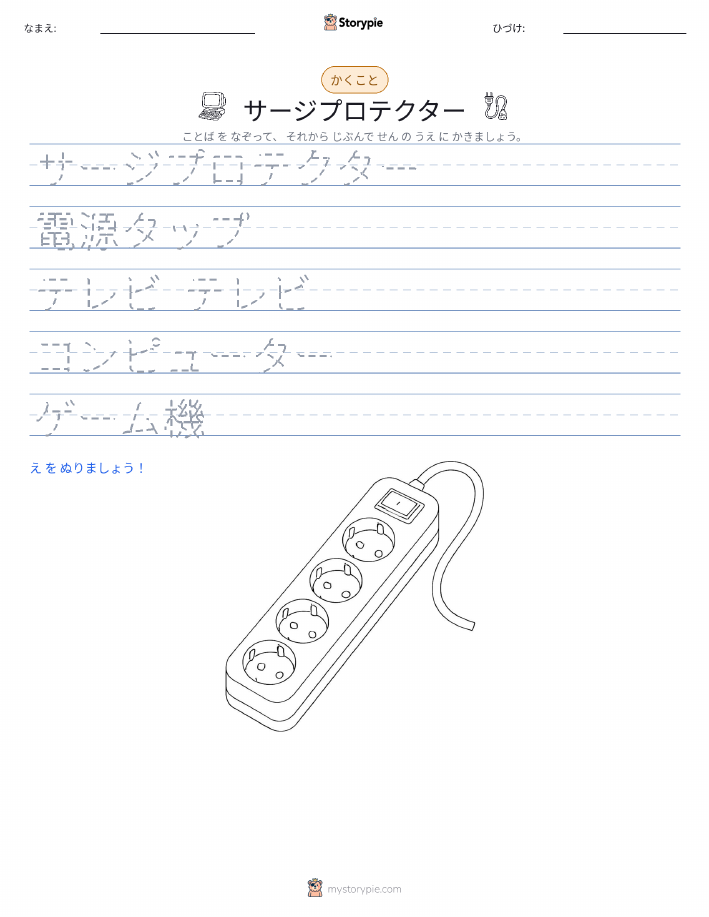 なまえ:
Storypie
ひづけ:
かくこと
サージプロテクター
ことば を なぞって、 それから じぶんで せん の うえ に かきましょう。
サージプロテクター
電源タップ
テレビ テレビ
コンピューター
ゲーム機
え を ぬりましょう！
mystorypie.com